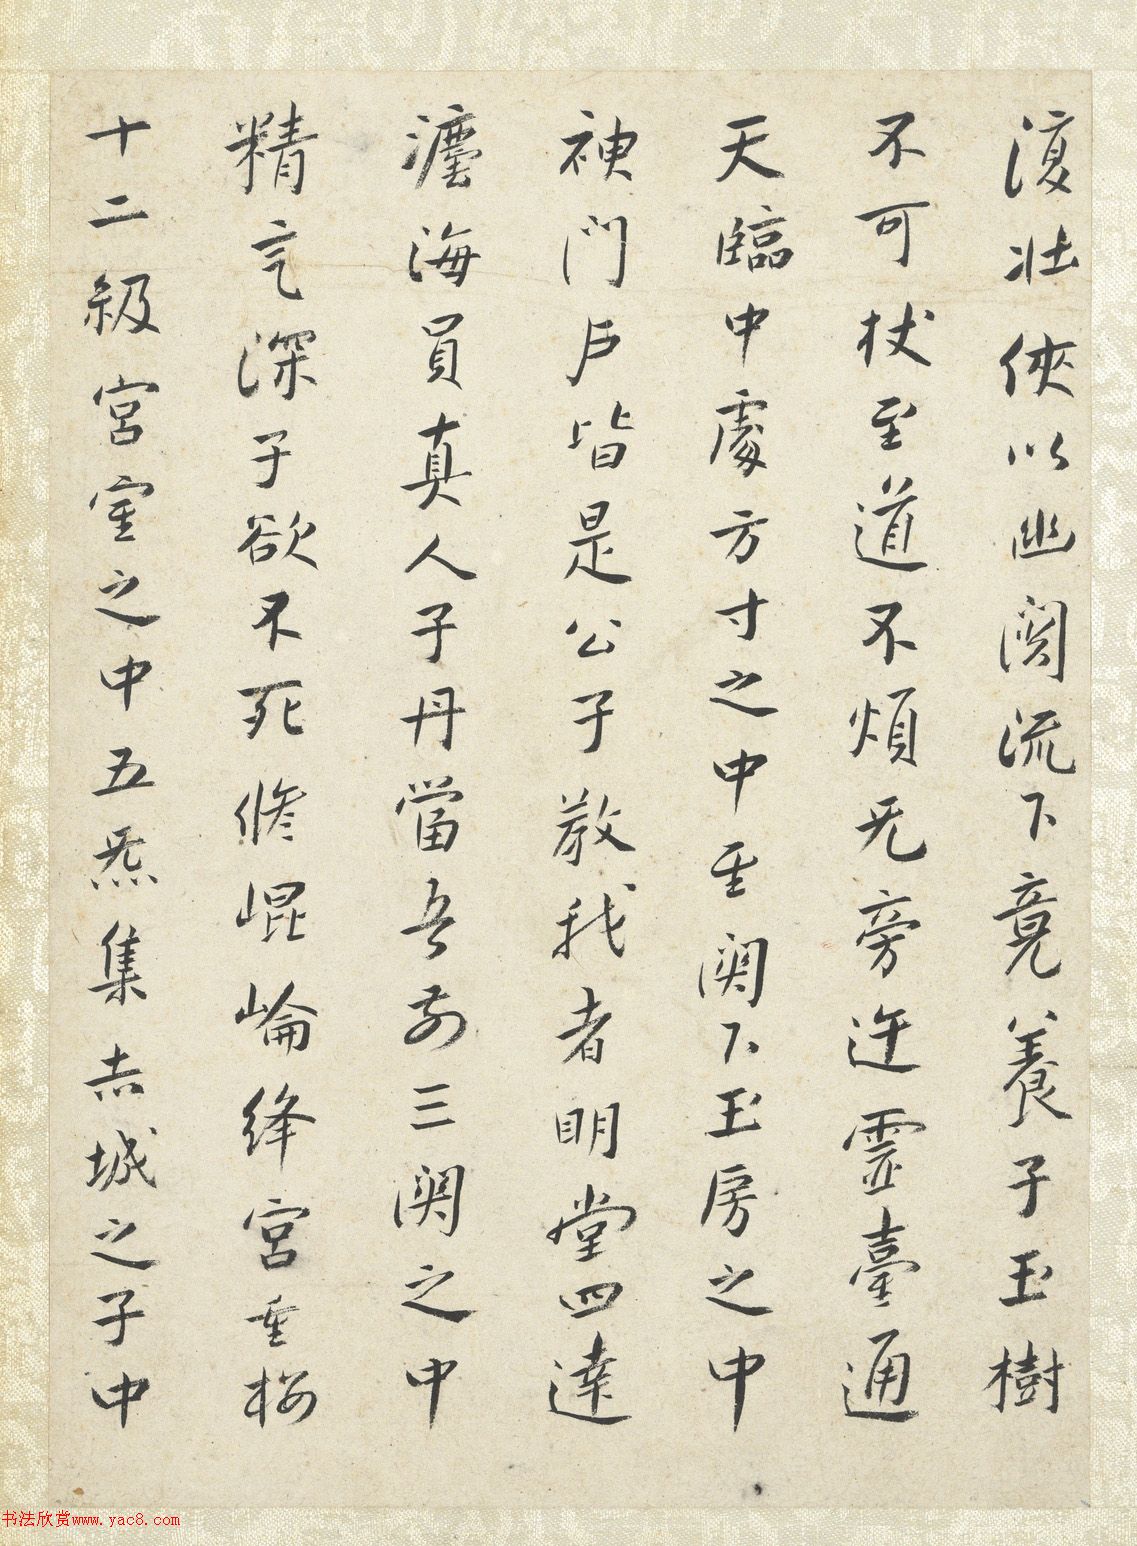 復壯俠以幽闕流下竟養子玉樹
不可杖至道不煩无旁迕靈臺通
天臨中處方寸之中至闕下玉房之中
神門戶皆是公子教我者明堂四達
瀍海員真人子丹當吾前三闕之中
精气深子欲不死脩崐崘絳宮重樓
十二級宮室之中五炁集赤城之子中
书法欣赏www.yac8.com